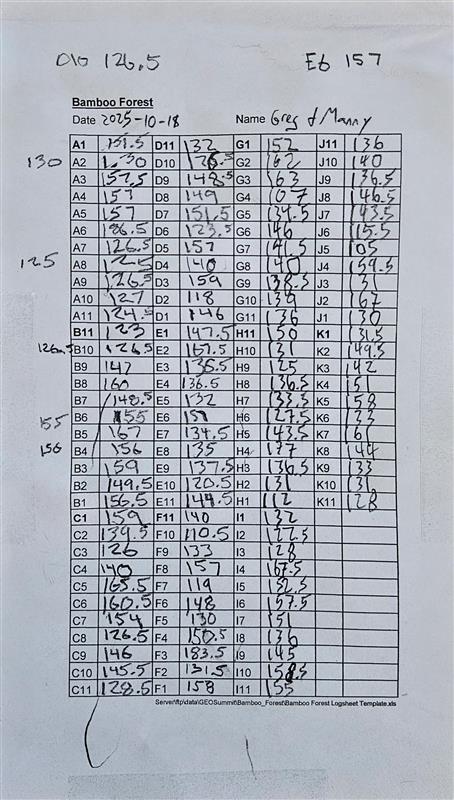 D10 126.5 E6 157
Bamboo Forest
Date 2025-10-18 Name Greg & Manny
A1 151.5 D11 132 G1 152 J11 136
130 A2 130 D10 126.5 G2 162 J10 140
A3 157.5 D9 148.5 G3 163 J9 136.5
A4 157 D8 149 G4 107 J8 146.5
A5 157 D7 151.5 G5 134.5 J7 143.5
A6 186.5 D6 123.5 G6 146 J6 115.5
A7 126.5 D5 157 G7 141.5 J5 105
125 A8 125 D4 140 G8 140 J4 159.5
A9 126.5 D3 159 G9 138.5 J3 131
A10 127 D2 118 G10 139 J2 167
A11 124.5 D1 146 G11 136 J1 130
B11 123 E1 147.5 H11 150 K1 131.5
126.5 B10 126.5 E2 167.5 H10 131 K2 149.5
B9 147 E3 135.5 H9 125 K3 142
B8 160 E4 136.5 H8 136.5 K4 151
B7 148.5 E5 132 H7 133.5 K5 158
155 B6 155 E6 157 H6 127.5 K6 133
B5 167 E7 134.5 H5 143.5 K7 161
156 B4 156 E8 135 H4 177 K8 144
B3 159 E9 137.5 H3 136.5 K9 133
B2 149.5 E10 120.5 H2 131 K10 131
B1 156.5 E11 144.5 H1 112 K11 128
C1 159 F11 140 I1 132
C2 139.5 F10 110.5 I2 122.5
C3 126 F9 133 I3 128
C4 140 F8 157 I4 167.5
C5 165.5 F7 119 I5 152.5
C6 160.5 F6 148 I6 157.5
C7 154 F5 130 I7 151
C8 126.5 F4 150.5 I8 136
C9 146 F3 183.5 I9 145
C10 145.5 F2 131.5 I10 158.5
C11 128.5 F1 158 I11 155
Server\ftp\data\GEOSummit\Bamboo_Forest\Bamboo Forest Logsheet Template.xls